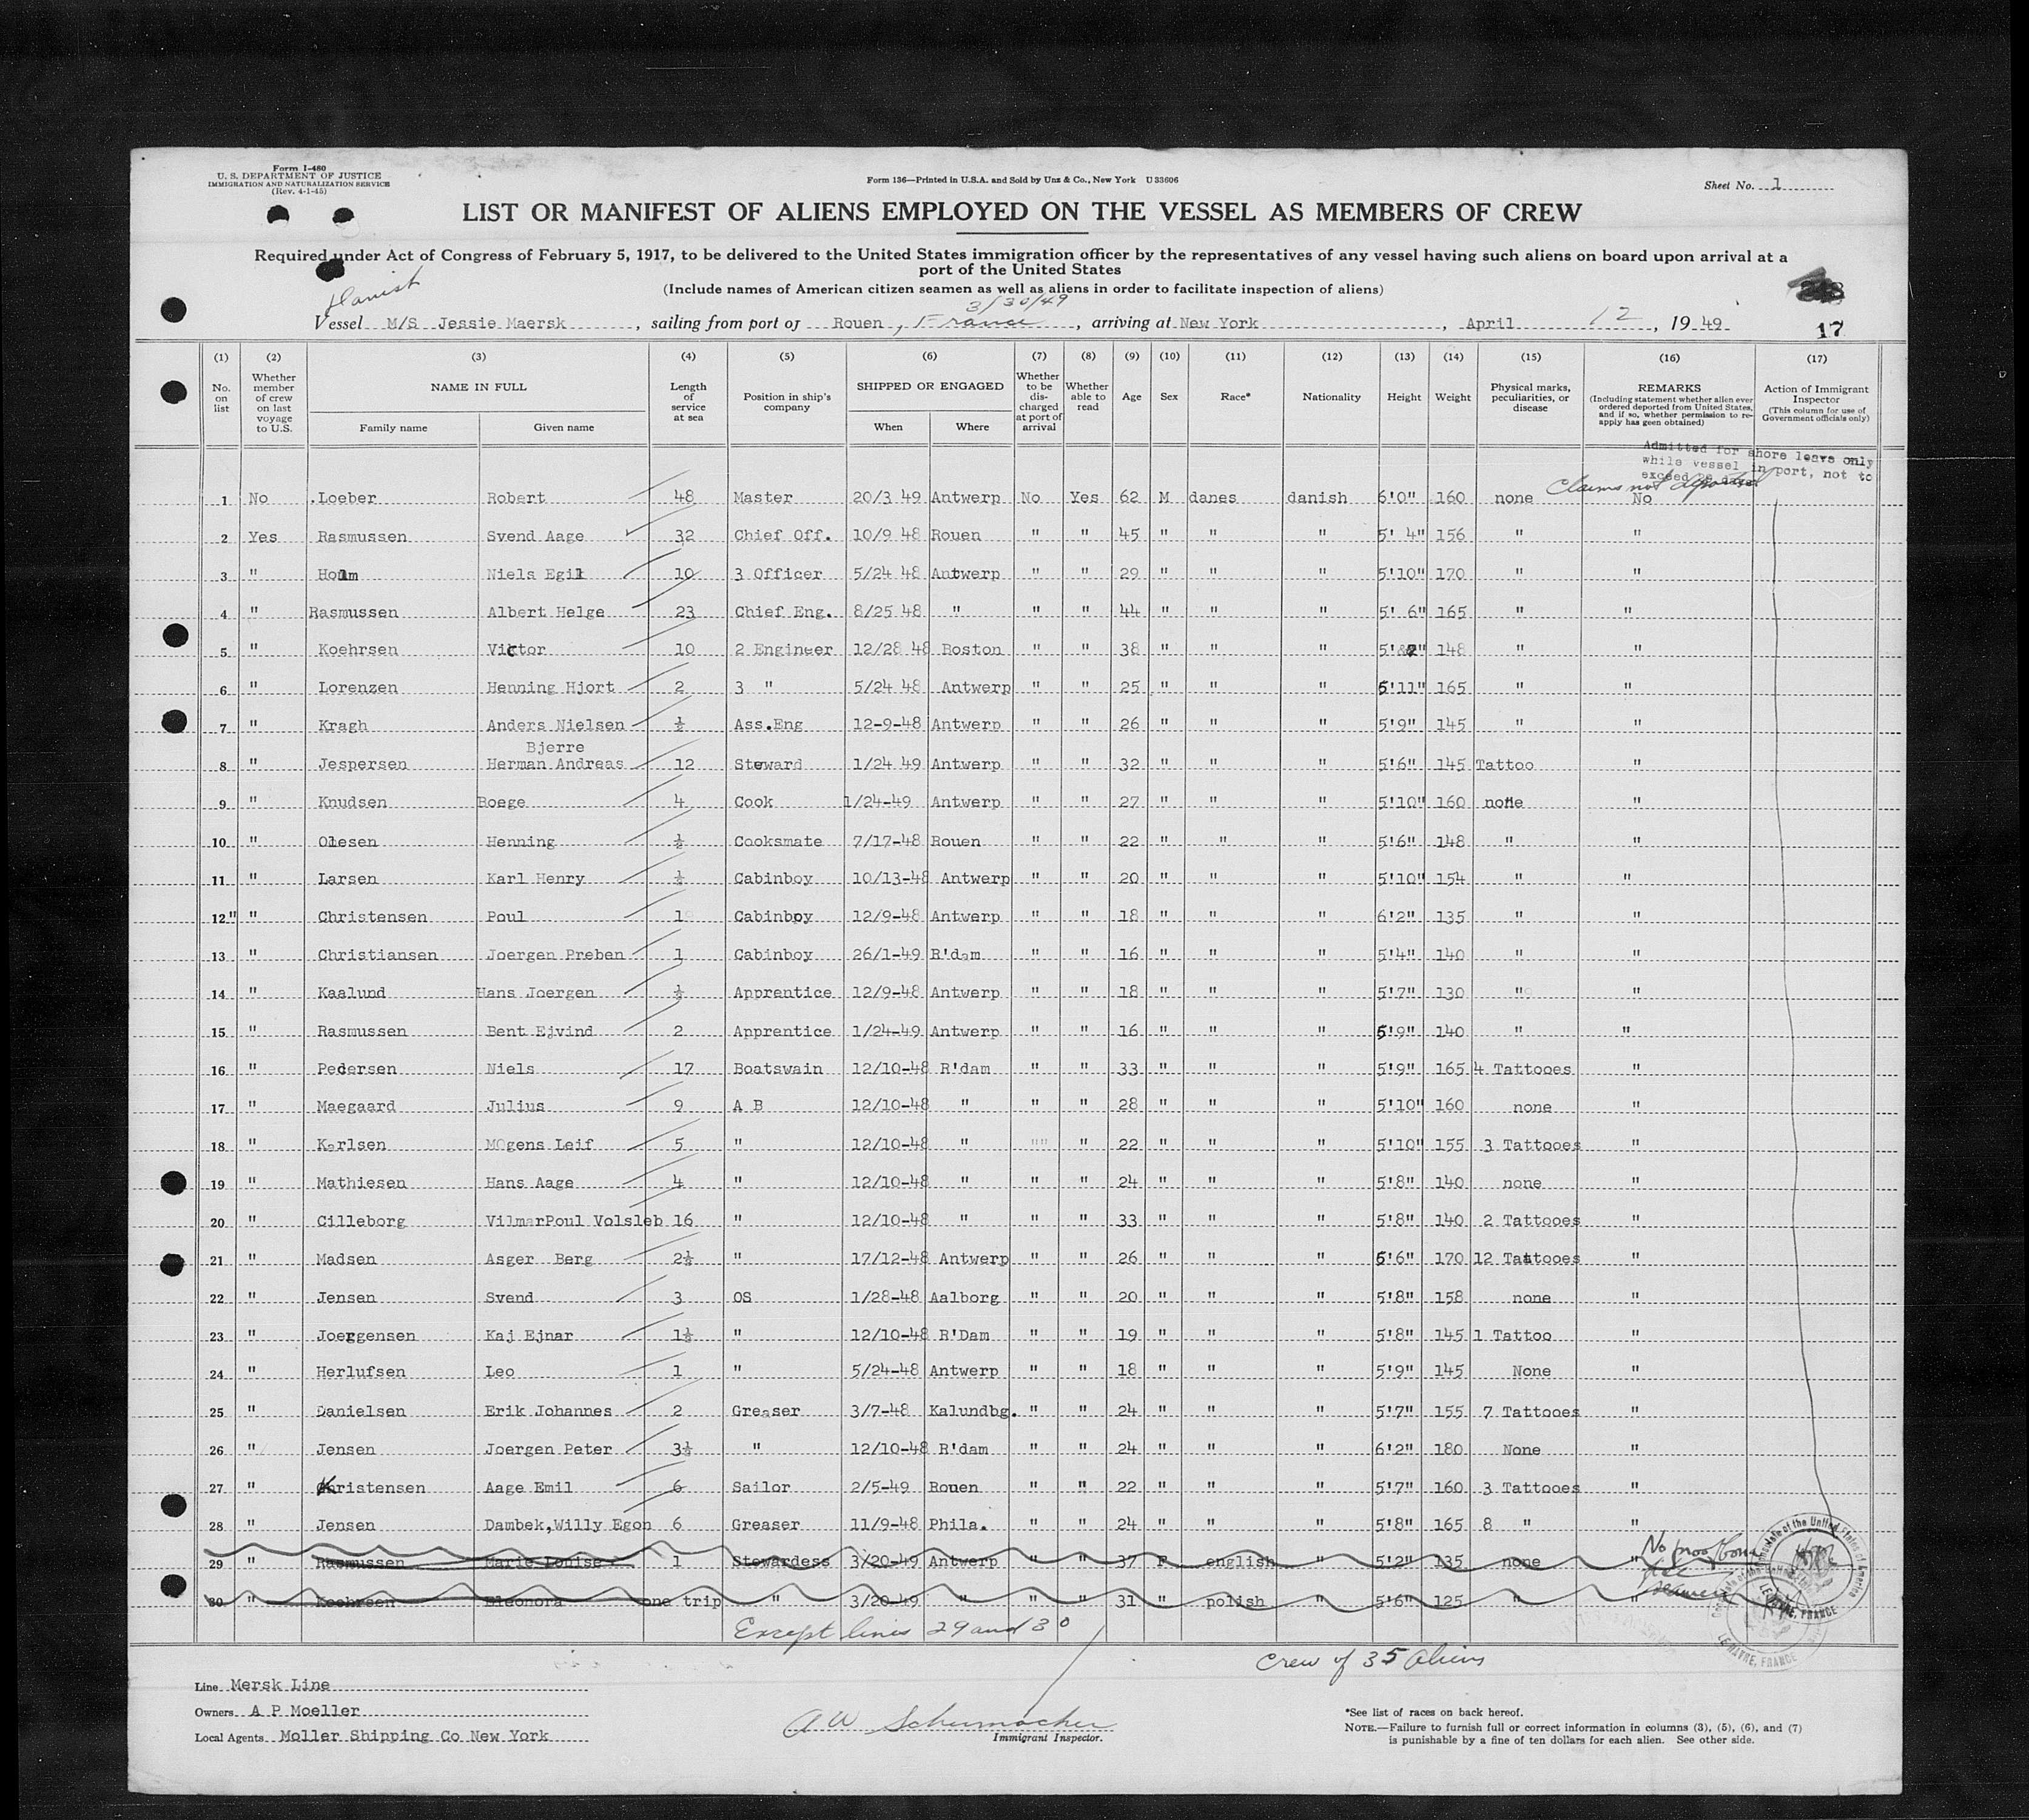 Form I-480
U. S. DEPARTMENT OF JUSTICE
IMMIGRATION AND NATURALIZATION SERVICE
(Rev. 4-1-45)
Form 136—Printed in U.S.A. and Sold by Unz & Co., New York U 33606
Sheet No. 1
LIST OR MANIFEST OF ALIENS EMPLOYED ON THE VESSEL AS MEMBERS OF CREW
Required under Act of Congress of February 5, 1917, to be delivered to the United States immigration officer by the representatives of any vessel having such aliens on board upon arrival at a
port of the United States
(Include names of American citizen seamen as well as aliens in order to facilitate inspection of aliens)
Danish
3/30/49
Vessel M/S Jessie Maersk, sailing from port of Rouen, France, arriving at New York, April 12, 1949
17
(1) (2) (3) (4) (5) (6) (7) (8) (9) (10) (11) (12) (13) (14) (15) (16) (17)
No. on list Whether member of crew on last voyage to U.S. NAME IN FULL Family name Given name Length of service at sea Position in ship's company SHIPPED OR ENGAGED When Where Whether to be discharged at port of arrival Whether able to read Age Sex Race* Nationality Height Weight Physical marks, peculiarities, or disease REMARKS (Including statement whether alien ever ordered deported from United States, and if so, whether permission to re-apply has geen obtained) Action of Immigrant Inspector (This column for use of Government officials only)
Admitted for shore leave only
while vessel in port, not to
Claims not deported
1 No .Loeber Robert 48 Master 20/3 49 Antwerp No Yes 62 M danes danish 6'0" 160 none No
2 Yes Rasmussen Svend Aage 32 Chief Off. 10/9 48 Rouen " " 45 " " " 5' 4" 156 " "
3 " Holm Niels Egil 10 3 Officer 5/24 48 Antwerp " " 29 " " " 5'10" 170 " "
4 " Rasmussen Albert Helge 23 Chief Eng. 8/25 48 " " " 44 " " " 5' 6" 165 " "
5 " Koehrsen Victor 10 2 Engineer 12/28 48 Boston " " 38 " " " 148 " "
6 " Lorenzen Henning Hjort 2 3 " 5/24 48 Antwerp " " 25 " " " 5'11" 165 " "
7 " Kragh Anders Nielsen ½ Ass.Eng 12-9-48 Antwerp " " 26 " " " 5'9" 145 " "
Bjerre
8 " Jespersen Herman Andreas 12 Steward 1/24 49 Antwerp " " 32 " " " 5'6" 145 Tattoo "
9 " Knudsen Boege 4 Cook 1/24-49 Antwerp " " 27 " " " 5'10" 160 none "
10 " Olesen Henning ½ Cooksmate 7/17-48 Rouen " " 22 " " " 5'6" 148 " "
11 " Larsen Karl Henry ½ Cabinboy 10/13-48 Antwerp " " 20 " " " 5'10" 154 " "
12" " Christensen Poul 1 Cabinboy 12/9-48 Antwerp " " 18 " " " 6'2" 135 " "
13 " Christiansen Joergen Preben 1 Cabinboy 26/1-49 R'dam " " 16 " " " 5'4" 140 " "
14 " Kaalund Hans Joergen ½ Apprentice 12/9-48 Antwerp " " 18 " " " 5'7" 130 " "
15 " Rasmussen Bent Ejvind 2 Apprentice 1/24-49 Antwerp " " 16 " " " 5'9" 140 " "
16 " Pedersen Niels 17 Boatswain 12/10-48 R'dam " " 33 " " " 5'9" 165 4 Tattooes "
17 " Maegaard Julius 9 A B 12/10-48 " " " 28 " " " 5'10" 160 none "
18 " Karlsen MOgens Leif 5 " 12/10-48 " "" " 22 " " " 5'10" 155 3 Tattooes "
19 " Mathiesen Hans Aage 4 " 12/10-48 " " " 24 " " " 5'8" 140 none "
20 " Cilleborg VilmarPoul Volsleb 16 " 12/10-48 " " " 33 " " " 5'8" 140 2 Tattooes "
21 " Madsen Asger Berg 2½ " 17/12-48 Antwerp " " 26 " " " 6'6" 170 12 Tattooes "
22 " Jensen Svend 3 OS 1/28-48 Aalborg " " 20 " " " 5'8" 158 none "
23 " Joergensen Kaj Ejnar 1½ " 12/10-48 R'Dam " " 19 " " " 5'8" 145 1 Tattoo "
24 " Herlufsen Leo 1 " 5/24-48 Antwerp " " 18 " " " 5'9" 145 None "
25 " Danielsen Erik Johannes 2 Greaser 3/7-48 Kalundbg. " " 24 " " " 5'7" 155 7 Tattooes "
26 " Jensen Joergen Peter 3½ " 12/10-48 R'dam " " 24 " " " 6'2" 180 None "
27 " Khristensen Aage Emil 6 Sailor 2/5-49 Rouen " " 22 " " " 5'7" 160 3 Tattooes "
28 " Jensen Dambek,Willy Egon 6 Greaser 11/9-48 Phila. " " 24 " " " 5'8" 165 8 " "
29 " Rasmussen Marie Louise 1 Stewardess 3/20-49 Antwerp " " 37 F english " 5'2" 135 none " No proof bona
30 " Koehrsen Eleonora one trip " 3/20-49 " " " 31 " polish " 5'6" 125 " " seamen
Except lines 29 and 30
Crew of 35 Aliens
LE HAVRE, FRANCE
Line Mersk Line
Owners A P Moeller
Local Agents Moller Shipping Co New York
A W Schumacher
Immigrant Inspector.
*See list of races on back hereof.
NOTE.—Failure to furnish full or correct information in columns (3), (5), (6), and (7)
is punishable by a fine of ten dollars for each alien. See other side.